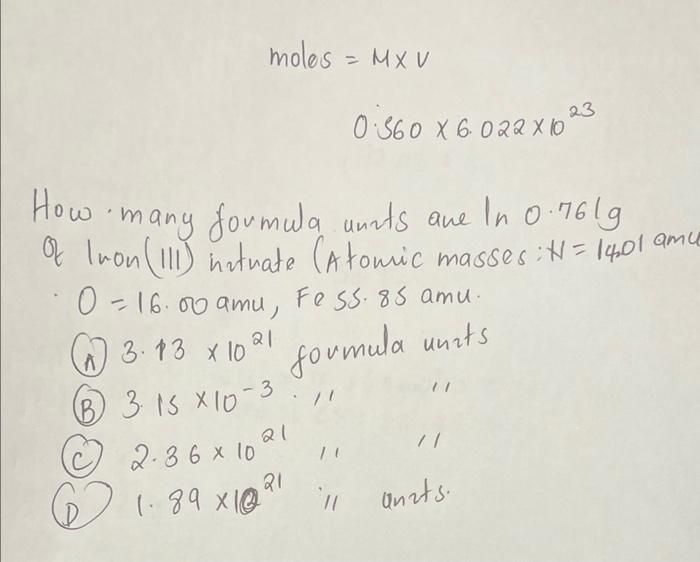 moles = M x V
0.560 x 6.022 x 10^23
How many formula units are In 0.761g
Of Iron(III) nitrate (Atomic masses: N = 14.01 amu
O = 16.00 amu, Fe 55.85 amu.
(A) 3.13 x 10^21 formula units
(B) 3.15 x 10^-3 . " "
(C) 2.36 x 10^21 " "
(D) 1.89 x 10^21 " units.